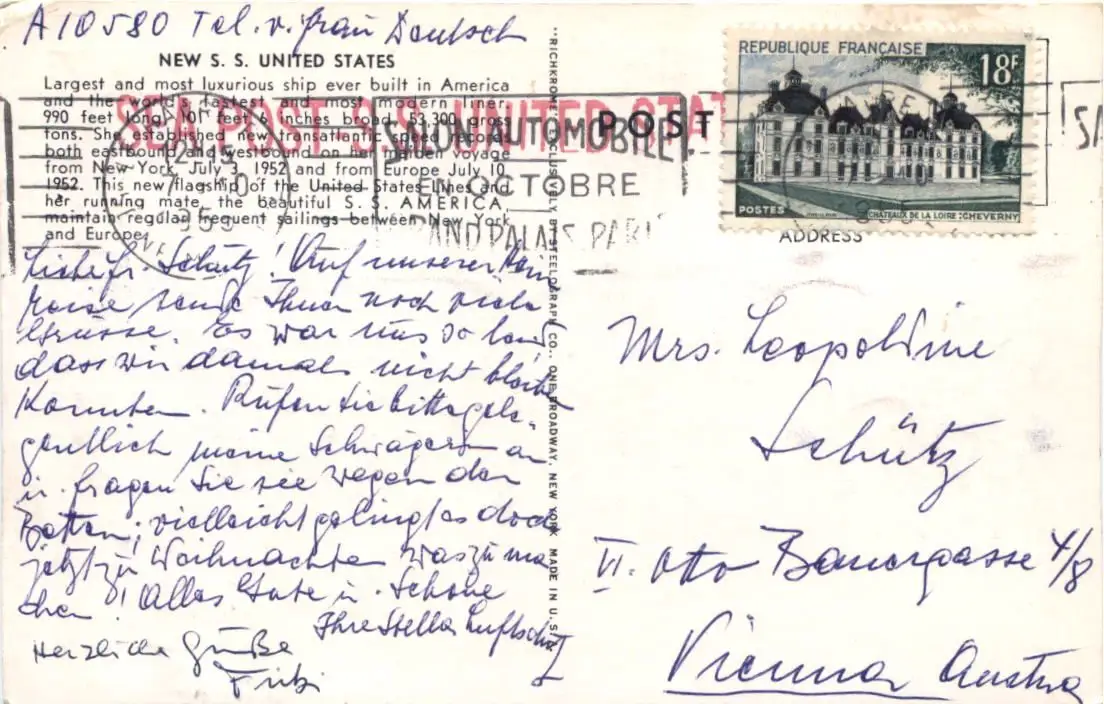 A10580 Tel. v. Frau Deutsch
NEW S. S. UNITED STATES
Largest and most luxurious ship ever built in America
and the world's fastest and most modern liner.
990 feet long, 101 feet 6 inches broad, 53,300 gross
tons. She established new transatlantic speed records
both eastbound and westbound on her maiden voyage
from New York July 3, 1952 and from Europe July 10,
1952. This new flagship of the United States Lines and
her running mate, the beautiful S. S. AMERICA,
maintain regular frequent sailings between New York
and Europe.
SEA POST S.S. UNITED STAT
SALON AUTOMOBILE
EN OCTOBRE
GRAND PALAIS PARIS
POST
REPUBLIQUE FRANÇAISE
18F
POSTES
CHATEAUX DE LA LOIRE : CHEVERNY
SA
ADDRESS
"RICHKROME" EXCLUSIVELY BY STEELOGRAPH CO., ONE BROADWAY, NEW YORK MADE IN U.S.A.
Liebe Fr. Schütz! Auf unserer Heim
reise sende Ihnen noch viele
Grüsse. Es war uns so leid
dass wir damals nicht bleiben
konnten. Rufen Sie bitte gele-
gentlich meine Schwägerin an
u. fragen Sie sie wegen den
Betten; vielleicht gelingt es doch
jetzt zu Weihnachten was zu ma
chen! Alles Gute u. Schöne
Ihre Stella Luftschitz
Herzliche Grüße
Fritz
Mrs. Leopoldine
Schütz
VI. Otto Bauergasse 4/8
Vienna Austria